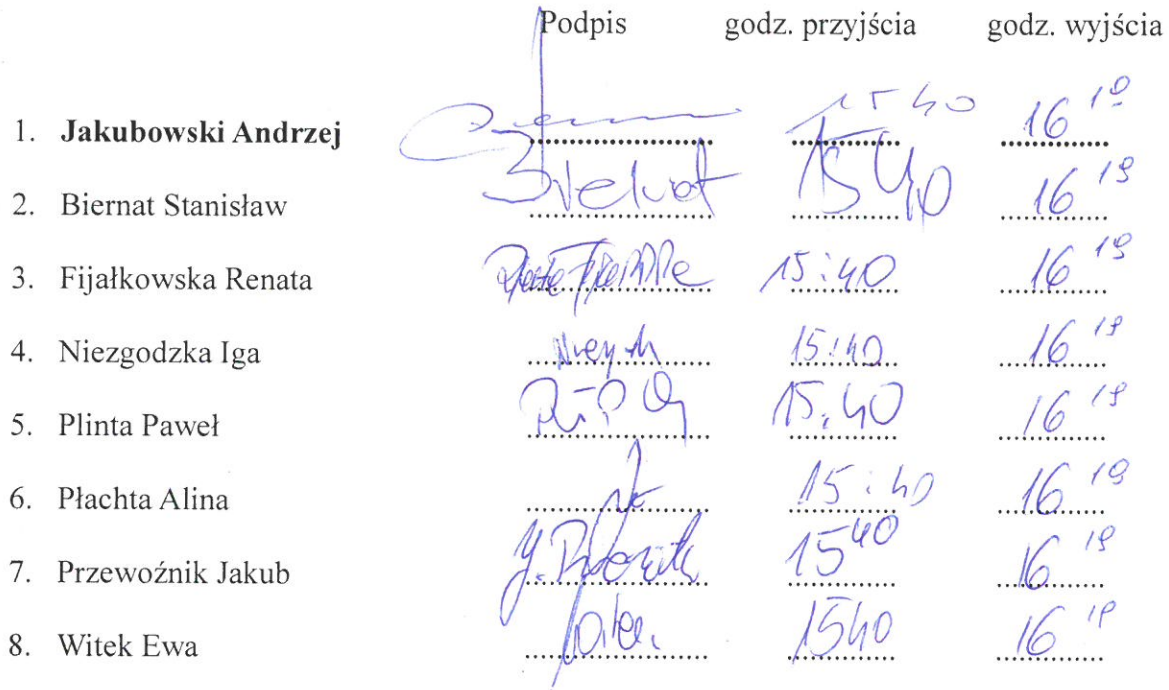 Podpis godz. przyjścia godz. wyjścia
1. Jakubowski Andrzej 15 40 16 19
2. Biernat Stanisław 15 40 16 19
3. Fijałkowska Renata 15:40 16 19
4. Niezgodzka Iga 15:40 16 19
5. Plinta Paweł 15.40 16 19
6. Płachta Alina 15:40 16 19
7. Przewoźnik Jakub 15 40 16 19
8. Witek Ewa 1540 16 19